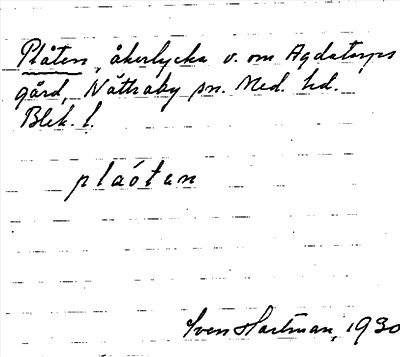 Plåten, åkerlycka v. om Agdatorps
gård, Nättraby sn. Med. hd.
Blek. l.
plaóten
Sven Hartman, 1930